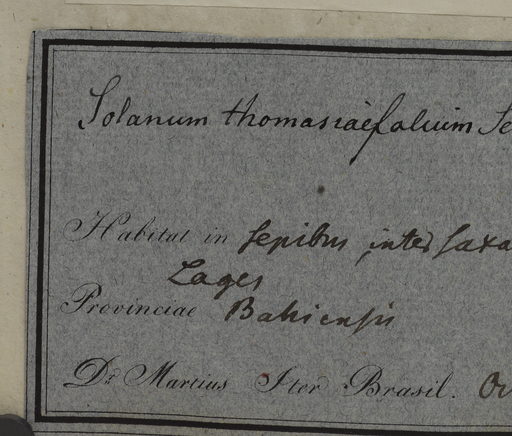 Solanum thomasiaefolium Se
Habitat in sepibus, inter saxa
Lages
Provinciae Bahiensis
Dr Martius Iter Brasil. Or